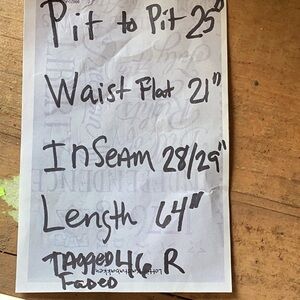 Pit to Pit 25"
Waist Flat 21"
InSeam 28/29"
Length 64"
TAGGED 46 R
FADED